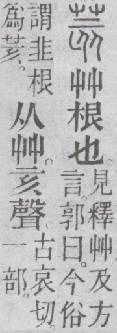 荄艸根也。
見釋艸及方
言郭曰。今俗
謂韭根
爲荄。
从艸。亥聲。
古哀切。
一部。